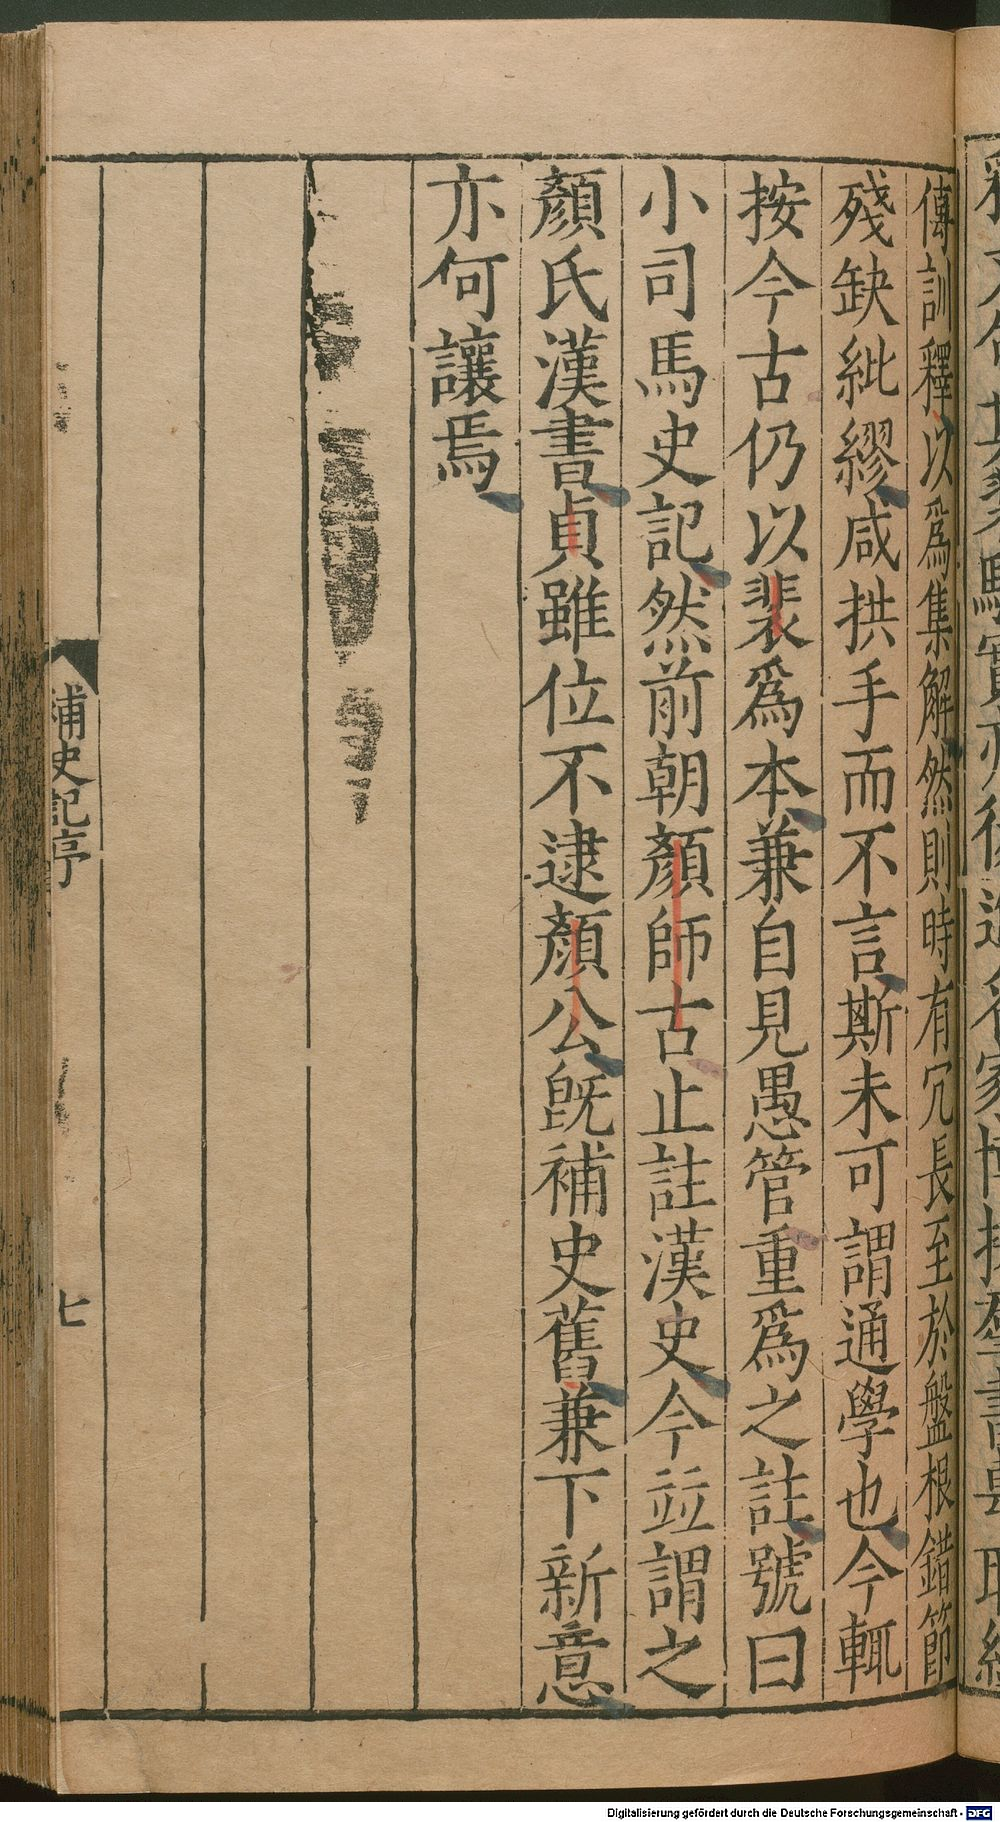 傳訓釋以爲集解然則時有冗長至於盤根錯節
殘缺紕繆咸拱手而不言斯未可謂通學也今輒
按今古仍以裴爲本兼自見愚管重爲之註號曰
小司馬史記然前朝顏師古止註漢史今並謂之
顏氏漢書貞雖位不逮顏公旣補史舊兼下新意
亦何讓焉
補史記序
七
Digitalisierung gefördert durch die Deutsche Forschungsgemeinschaft - DFG